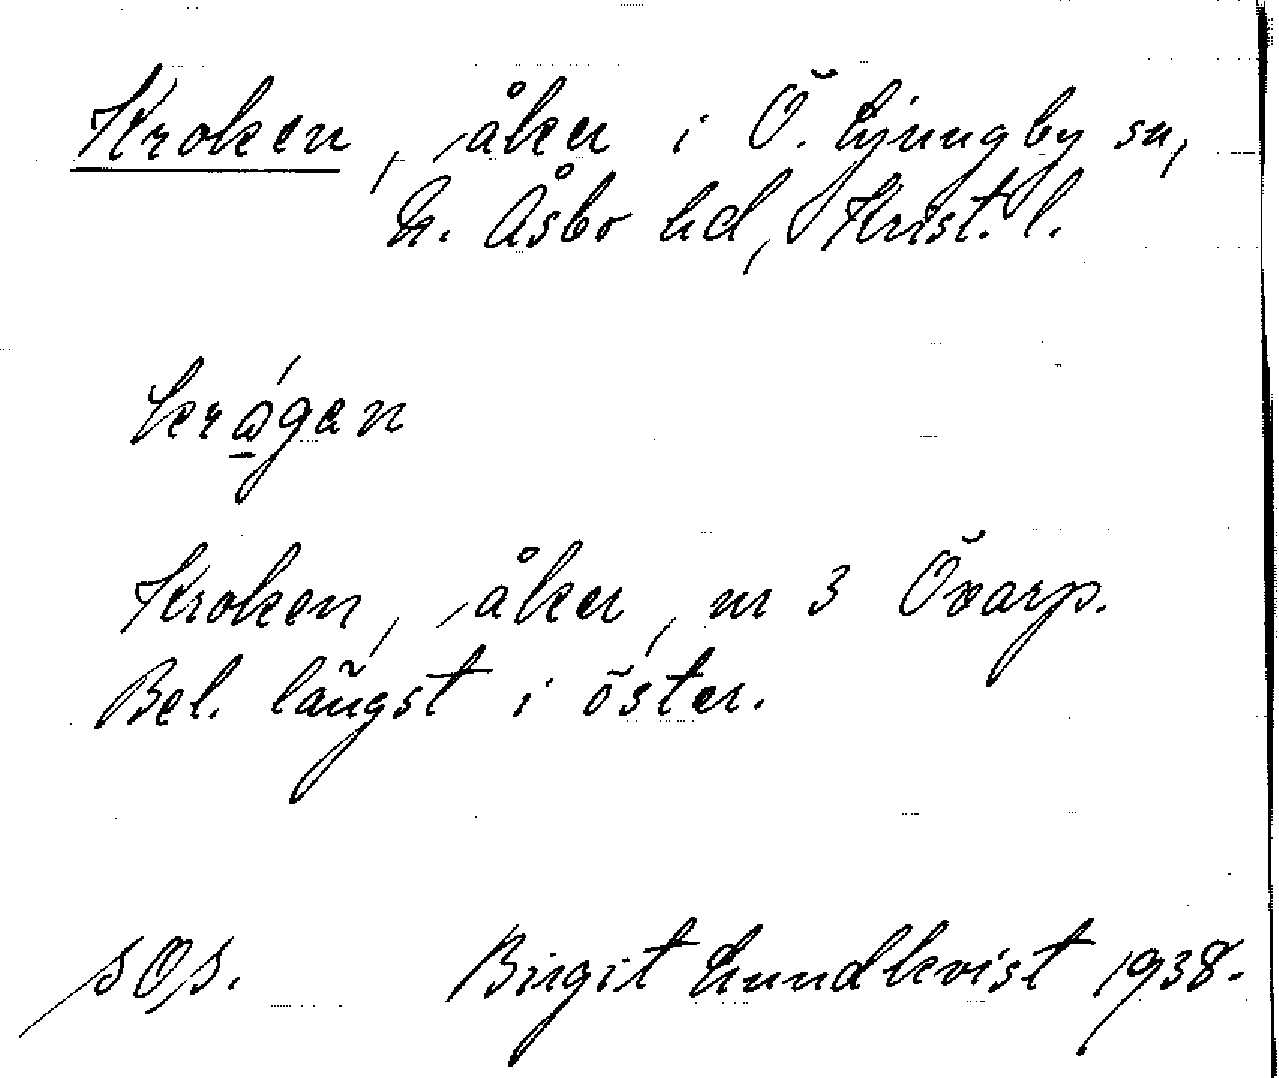 Kroken, åker i Ö. Ljungby sn,
N. Åsbo hd, Krist. l.
Kroken, åker, nr 3 Öxarp.
Bel. längst i öster.
SOS. Birgit Lundkvist 1938.